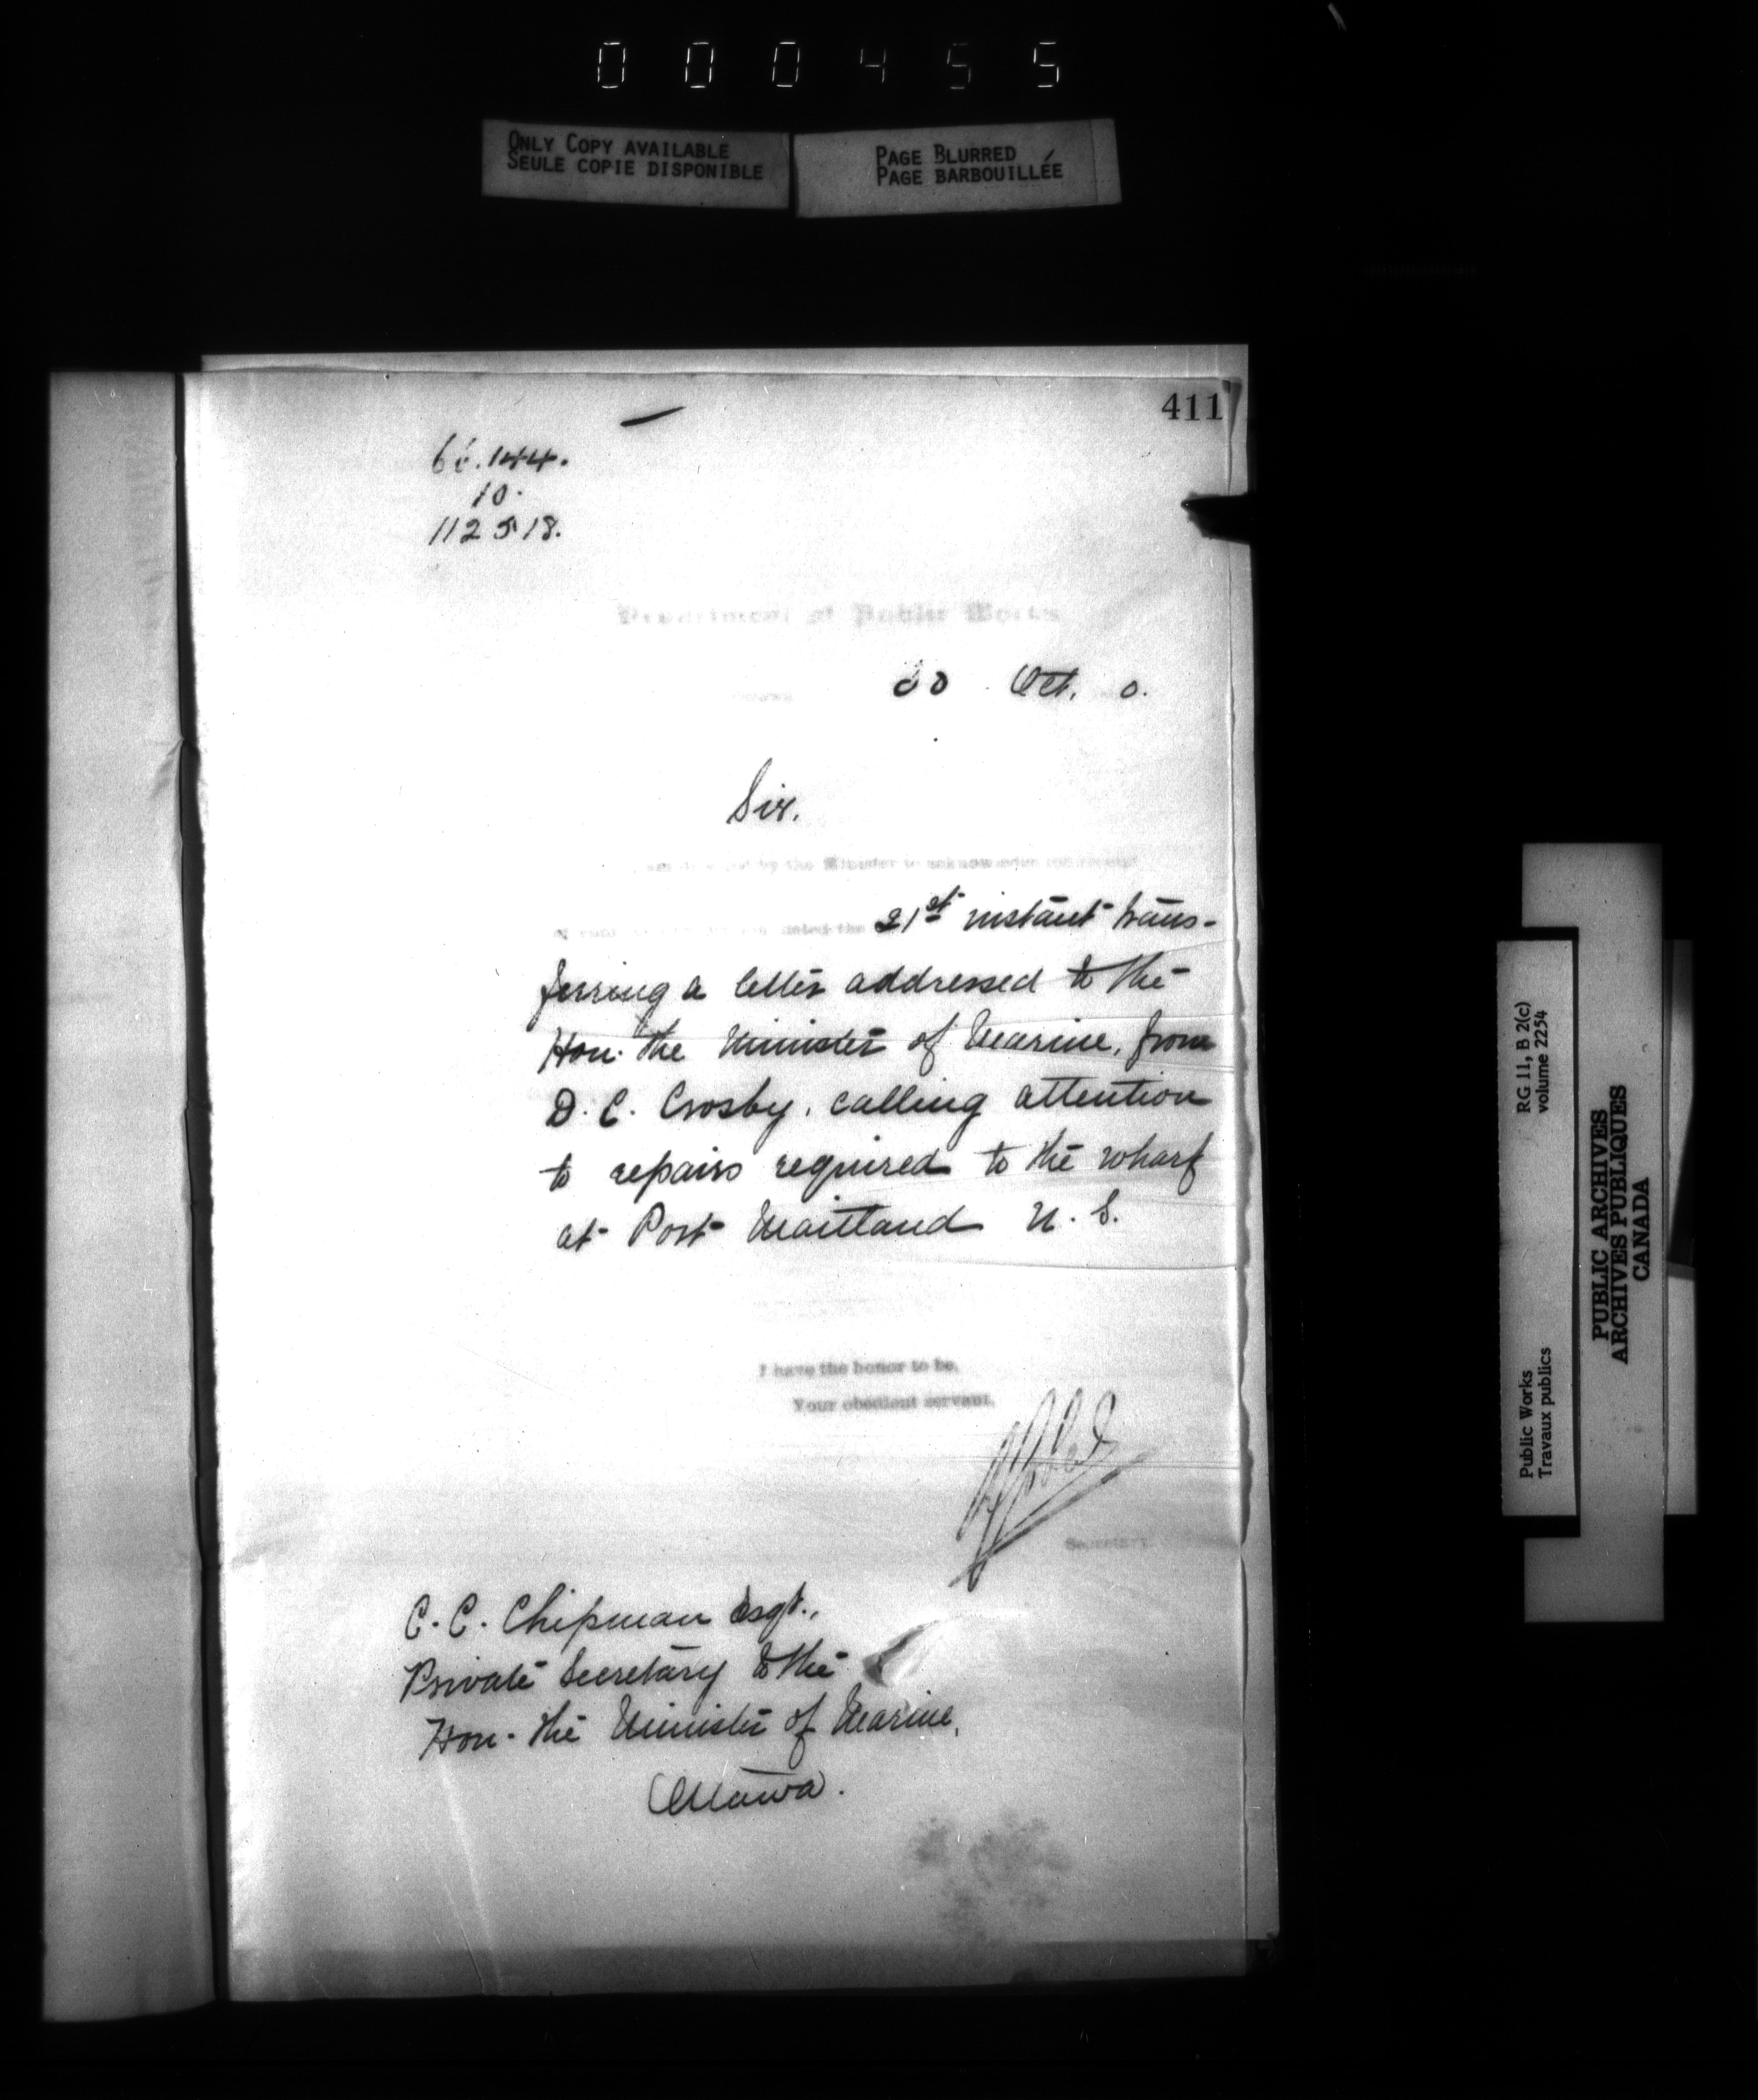 000455
ONLY COPY AVAILABLE
SEULE COPIE DISPONIBLE
PAGE BLURRED
PAGE BARBOUILLÉE
411
144.
10.
112518.
Department of Public Works
Oct. 0.
Sir,
by the Minister to acknowledge the receipt
dated the 21st instant trans-
ferring a letter addressed to the
Hon. the Minister of Marine, from
D. C. Crosby, calling attention
to repairs required to the wharf
at Port Maitland N. S.
I have the honor to be,
Your obedient servant,
Secretary.
C. C. Chipman Esqr.,
Private Secretary to the
Hon. the Minister of Marine,
Ottawa.
RG 11, B 2(c)
volume 2254
Public Works
Travaux publics
PUBLIC ARCHIVES
ARCHIVES PUBLIQUES
CANADA